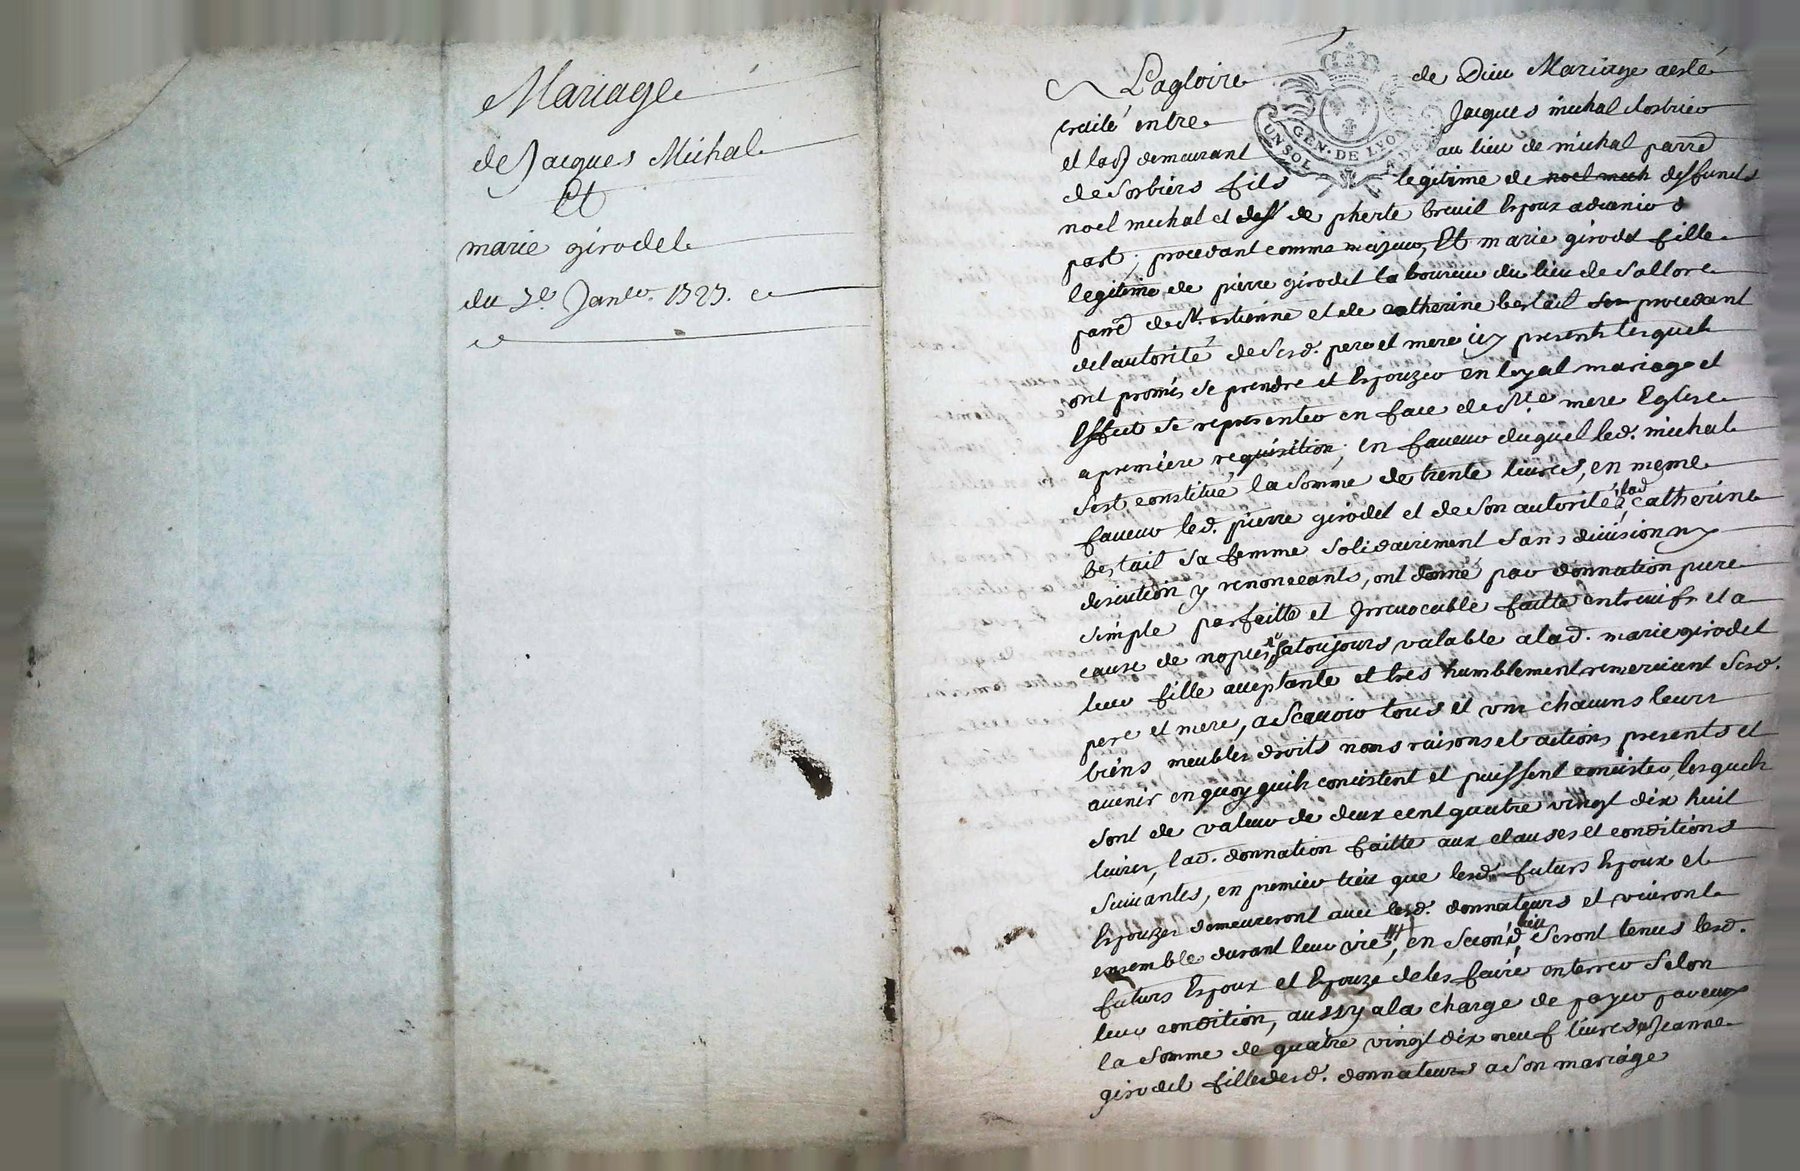 Mariage
de Jacques Michal
Et
marie girodet
du 7e. Janer. 1727.
Lagloire de Dieu Mariage aesté
traité entre Jacques michal
et demeurant au lieu de michal parre
de Sorbiers fils legitime de noel mich deffuncts
noel michal et de pherte breuil Espoux advenir d
part, procedant comme majeur, Et marie girodet fille
legitime de pierre girodet laboureur du lieu de Sallore
parre de St. estienne et de catherine bestail procedant
delautorité de Sesd. pere et mere icy presents lesquels
ont promis se prendre et Espouzer en loyal mariage et
Effect se representer en face de Ste mere Eglise
a premiere requisition, en faveur duquel led. michal
Sest constitué la Somme de trente livres, en meme
faveur led. pierre girodet et de son autorité lad catherine
bestail sa femme solidairement sans division ny
discution y renonceants, ont donné par donnation pure
simple parfaitte et Irrevocable faitte entre vifs et a
cause de nopces a toujours valable a lad. marie girodet
leur fille acceptante et tres humblement remerciant Sesd.
pere et mere, a Scavoir tous et chacuns leurs
biens meubles droits noms raisons et actions presents et
avenir en quoy quils concistent et puissent concister, lesquels
sont de valeur de deux cent quatre vingt dix huit
livres, lad. donnation faitte aux clauses et conditions
Suivantes, en premier lieu que lesd. futurs Espoux et
Espouze demeureront avec lesd. donnateurs et vivront
ensemble durant leur vie, en Second lieu Seront tenus lesd.
futurs Espoux et Espouze de les faire enterrer Selon
leur condition, aussy a la charge de payer par eux
la Somme de quatre vingt dix neuf livres a Jeanne
girodet fille desd. donnateurs a Son mariage
GEN. DE LYON
UN SOL 4 DEN.